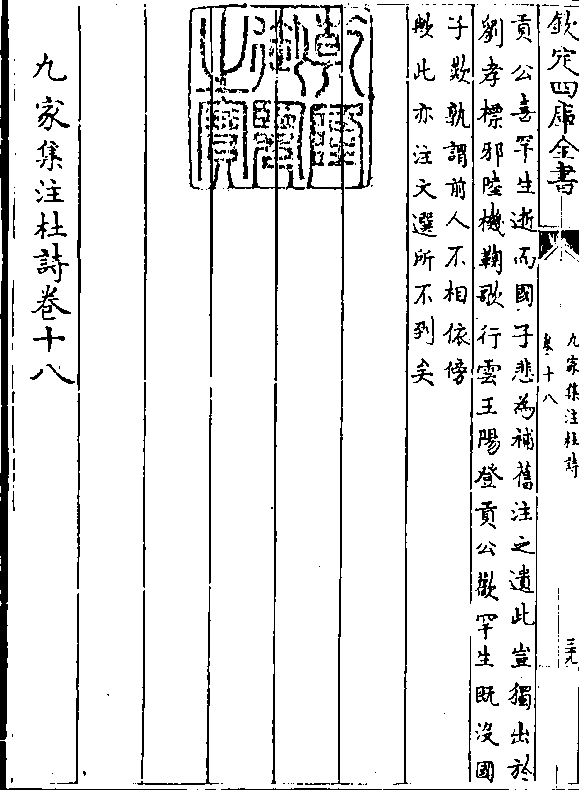 欽定四庫全書
九家集注杜詩
卷十八
三九
貢公喜罕生逝而國子悲為補舊注之遺此豈獨出於
劉孝標邪陸機鞠歌行雲王陽登貢公歡罕生既沒國
子歎孰謂前人不相依傍
歟此亦注文選所不到矣
乾隆御覽之寶
九家集注杜詩卷十八